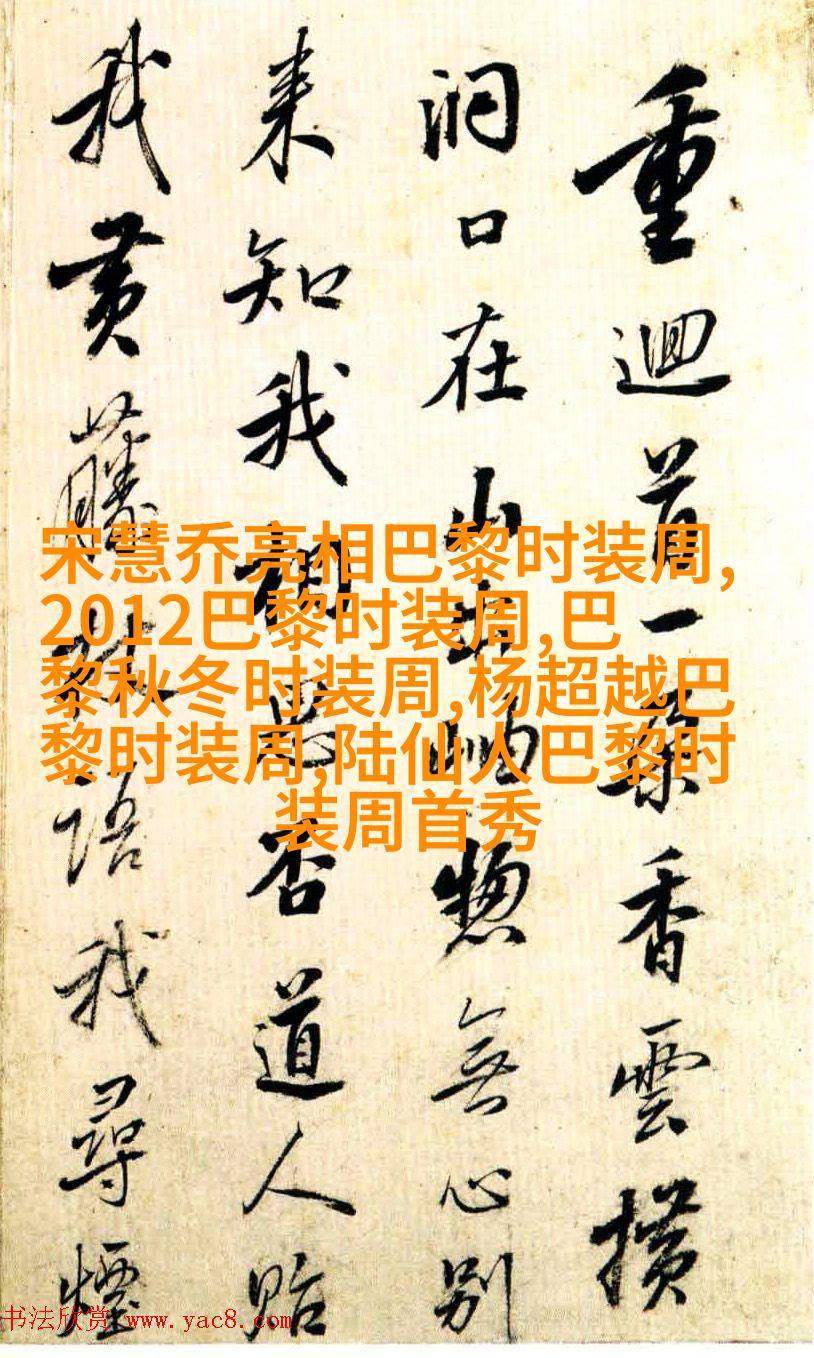 重迴首一朵香雲横
洞口在山出岫惣無心別
来知我相思否道人貽
我黄藤杖語我尋煙
宋慧乔亮相巴黎时装周,
2012巴黎时装周,巴
黎秋冬时装周,杨超越巴
黎时装周,陆仙人巴黎时
装周首秀
书法欣赏 www.yac8.com